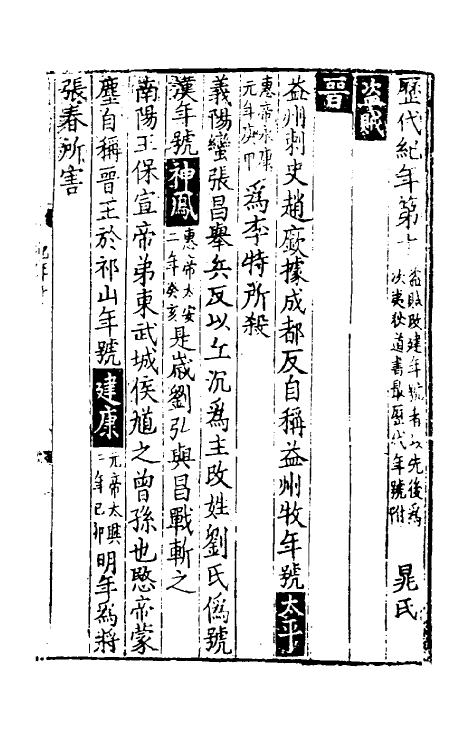 歷代紀年第十 盜賊改建年號者以先後爲次夷狄道書最歷代年號附 晁氏
盜賊
晉
益州刺史趙廞據成都反自稱益州牧年號太平
惠帝永康元年庚申爲李特所殺
義陽蠻張昌舉兵反以丘沉爲主改姓劉氏僞號
漢年號神鳳惠帝太安二年癸亥是歲劉弘與昌戰斬之
南陽王保宣帝弟東武城侯馗之曾孫也愍帝蒙
塵自稱晉王於祁山年號建康元帝太興二年己卯明年爲將
張春所害